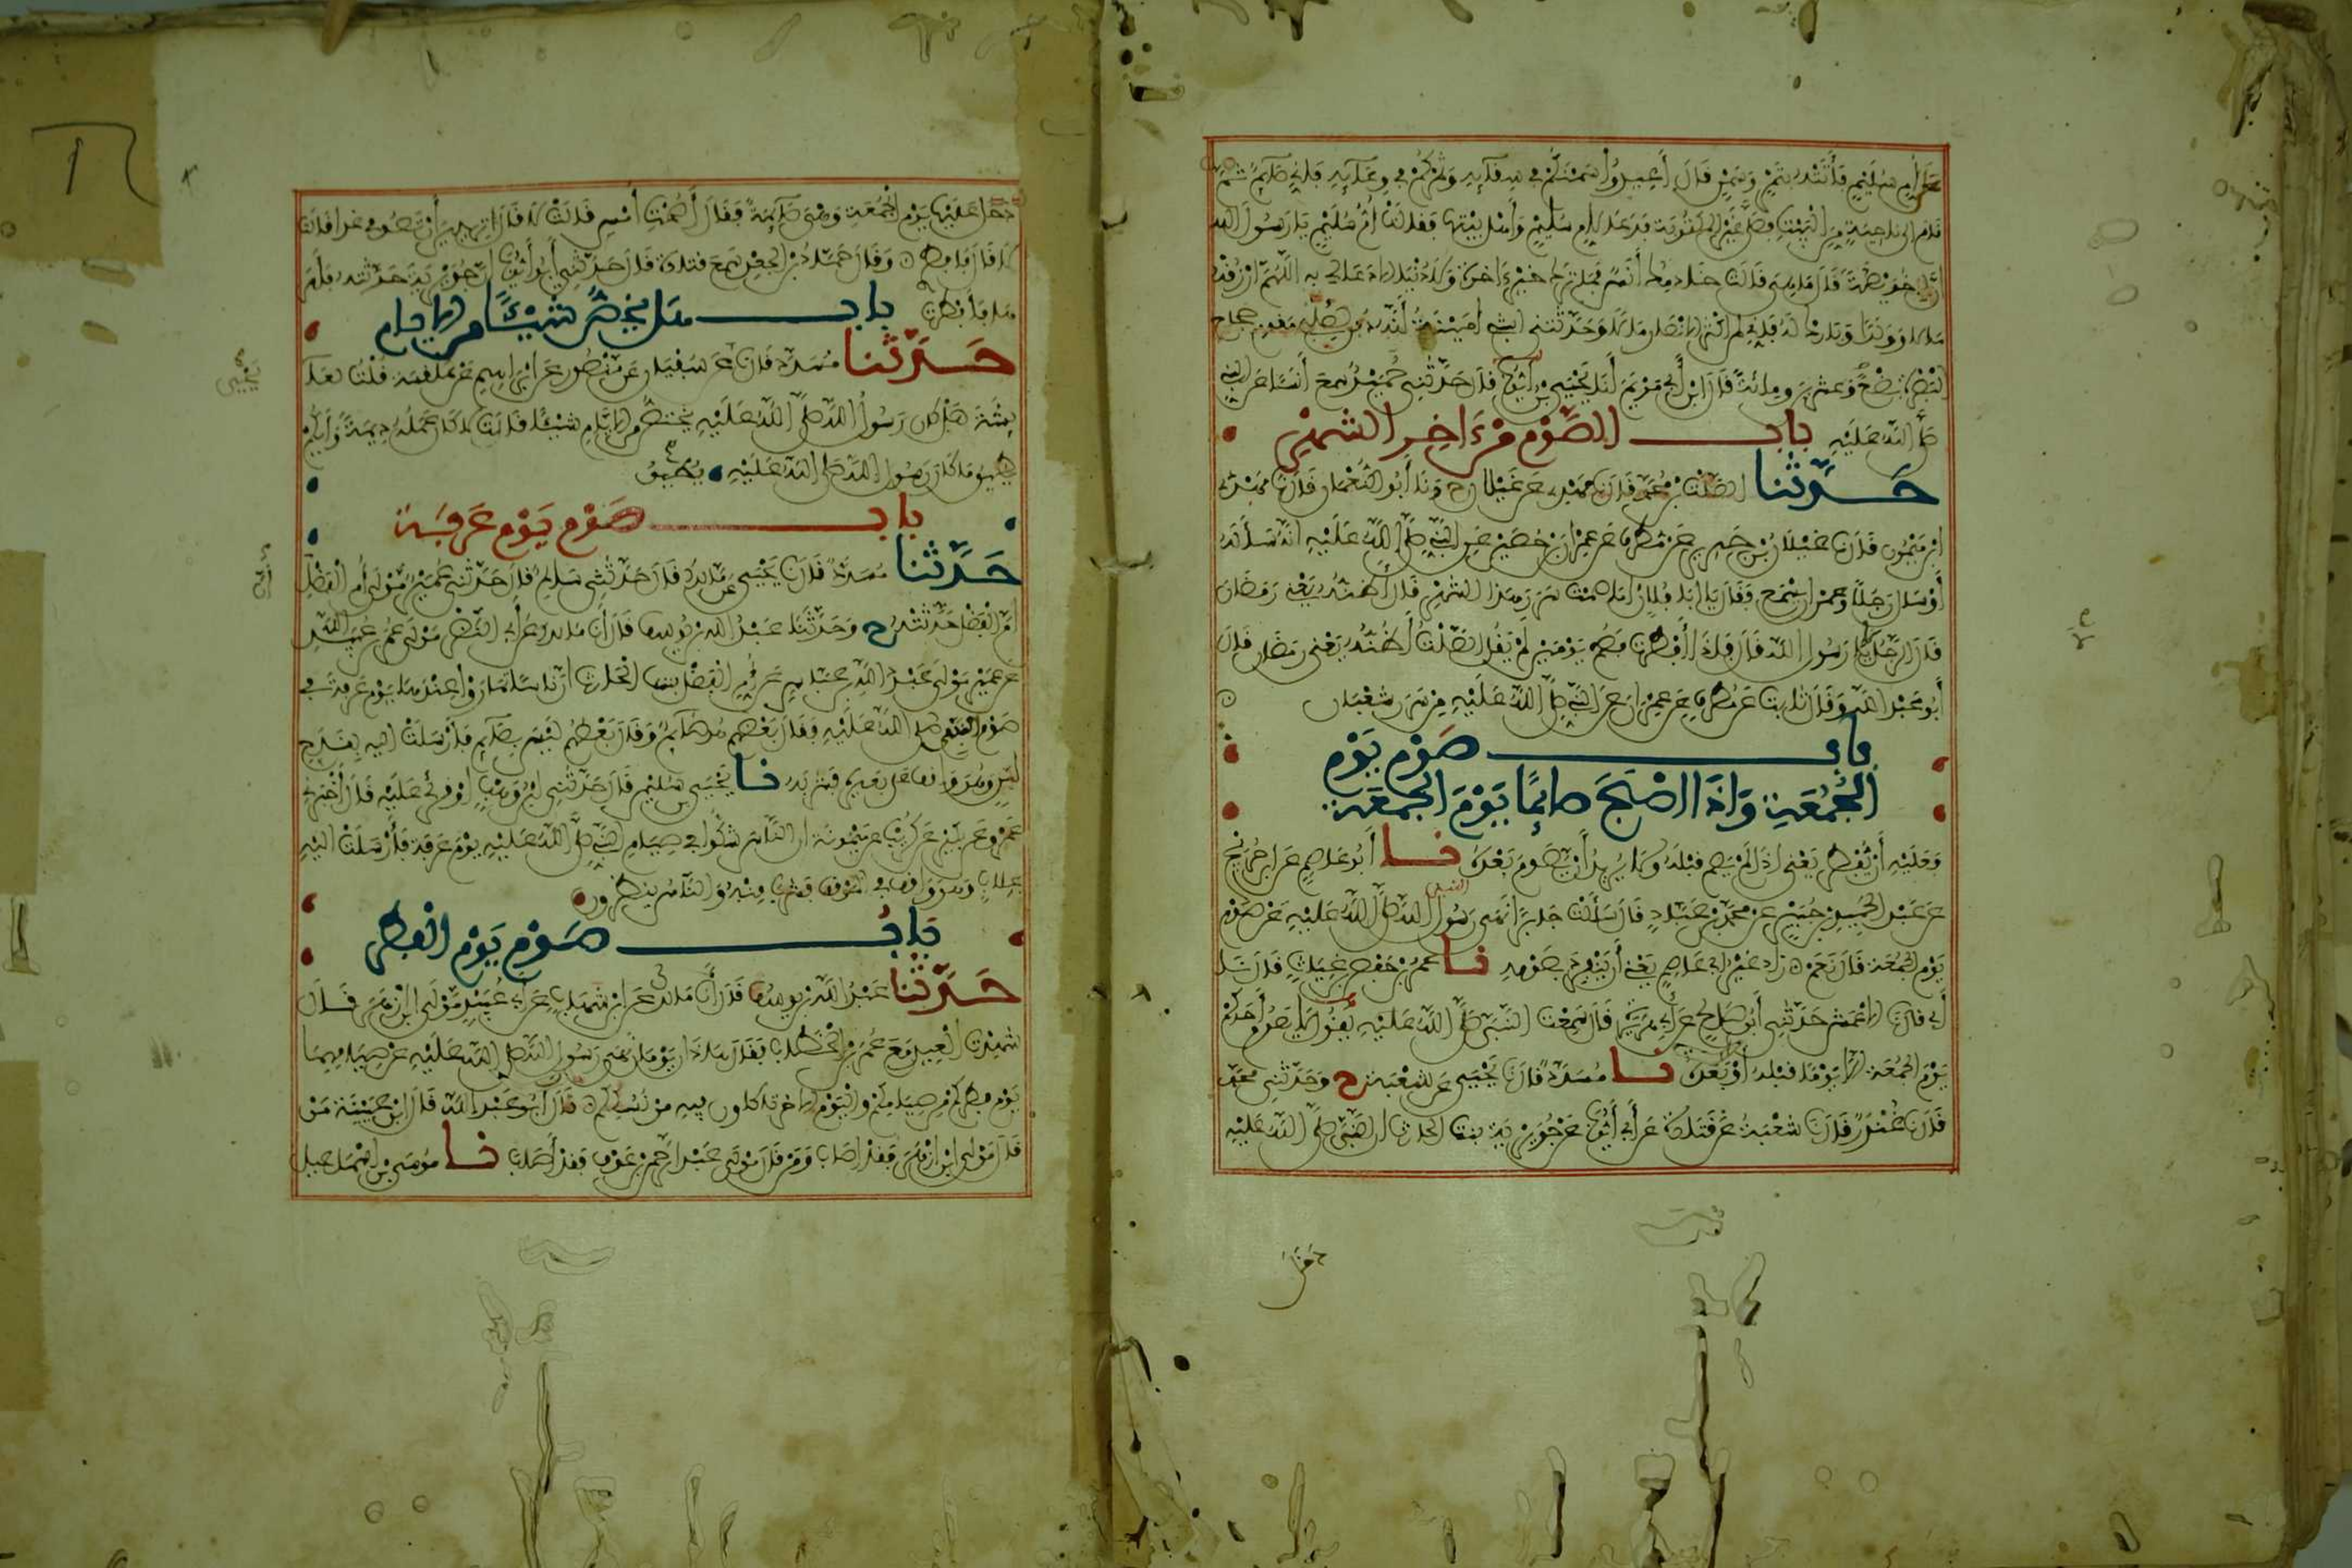 على أم سليم فأتته بتمر وسمن قال أعيدوا سمنكم في سقائه وتمركم في وعائه فإني صائم ثم
قام إلى ناحية من البيت فصلى غير المكتوبة فدعا لأم سليم وأهل بيتها فقالت أم سليم يا رسول الله
إن لي خويصة قال ما هي قالت خادمك أنس فما ترك خير ءاخرة ولا دنيا إلا دعا لي به اللهم ارزقه
مالا وولدا وبارك له فإني لمن أكثر الأنصار مالا وحدثتني ابنتي أمينة أنه دفن لصلبي مقدم حجاج
البصرة بضع وعشرين ومائة قال ابن أبي مريم أنا يحيى بن أيوب قال حدثني حميد سمع أنسا عن النبي
صلى الله عليه باب الصوم من ءاخر الشهر
حدثنا الصلت بن محمد قال نا مهدي عن غيلان ح ونا أبو النعمان قال نا مهدي
ابن ميمون قال نا غيلان بن جرير عن مطرف عن عمران بن حصين عن النبي صلى الله عليه أنه سأله
أو سأل رجلا وعمران يسمع فقال يا أبا فلان أما صمت سرر هذا الشهر قال أظنه يعني رمضان
قال الرجل لا يا رسول الله قال فإذا أفطرت فصم يومين لم يقل الصلت أظنه يعني رمضان قال
أبو عبد الله وقال ثابت عن مطرف عن عمران عن النبي صلى الله عليه من سرر شعبان
باب صوم يوم
الجمعة وإذا أصبح صائما يوم الجمعة
فعليه أن يفطر يعني إذا لم يصم قبله ولا يريد أن يصوم بعده نا أبو عاصم عن ابن جريج
عن عبد الحميد بن جبير عن محمد بن عباد قال سألت جابرا أنهى رسول الله صلى الله عليه عن صوم
يوم الجمعة قال نعم زاد غير أبي عاصم يعني أن ينفرد بصومه نا عمر بن حفص بن غياث قال نا
أبي قال نا الأعمش حدثني أبو صالح عن أبي هريرة قال سمعت النبي صلى الله عليه يقول لا يصوم أحدكم
يوم الجمعة إلا يوما قبله أو بعده نا مسدد قال نا يحيى عن شعبة ح وحدثني محمد
قال نا غندر قال نا شعبة عن قتادة عن أبي أيوب عن جويرية بنت الحارث أن النبي صلى الله عليه
دخل
دخل عليها يوم الجمعة وهي صائمة فقال أصمت أمس قالت لا قال أتريدين أن تصومي غدا قالت
لا قال فافطري وقال حماد بن الجعد سمع قتادة قال حدثني أبو أيوب أن جويرية حدثته فأمر
ها فأفطرت باب هل يخص شيئا من الأيام
حدثنا مسدد قال نا عن سفيان عن منصور عن إبراهيم عن علقمة قلت لعا
يحيى
يشة هل كان رسول الله صلى الله عليه يختص من الأيام شيئا قالت لا كان عمله ديمة وأيكم
يطيق ما كان رسول الله صلى الله عليه يطيق
باب صوم يوم عرفة
حدثنا مسدد قال نا يحيى عن مالك قال حدثني سالم قال حدثني عمير مولى أم الفضل
أم الفضل حدثته ح وحدثنا عبد الله بن يوسف قال أنا مالك عن أبي النضر مولى عمر بن عبيد الله
عن عمير مولى عبد الله بن عباس عن أم الفضل بنت الحارث أن ناسا تماروا عندها يوم عرفة في
صوم النبي صلى الله عليه فقال بعضهم هو صائم وقال بعضهم ليس بصائم فأرسلت إليه بقدح
لبن وهو واقف على بعيره فشربه نا يحيى بن سليمن قال حدثني ابن وهب أو قرئ عليه قال أخبرني
عمرو عن بكير عن كريب عن ميمونة أن الناس شكوا في صيام النبي صلى الله عليه يوم عرفة فأرسلت إليه
بحلاب وهو واقف في الموقف فشرب منه والناس ينظرون
باب صوم يوم الفطر
حدثنا عبد الله بن يوسف قال أنا مالك عن ابن شهاب عن أبي عبيد مولى ابن أزهر قال
شهدت العيد مع عمر بن الخطاب فقال هذان يومان نهى رسول الله صلى الله عليه عن صيامهما
يوم فطركم من صيامكم واليوم الآخر تأكلون فيه من نسككم قال أبو عبد الله قال ابن عيينة من
قال مولى ابن أزهر فقد أصاب ومن قال مولى عبد الرحمن بن عوف فقد أصاب نا موسى بن إسمعيل